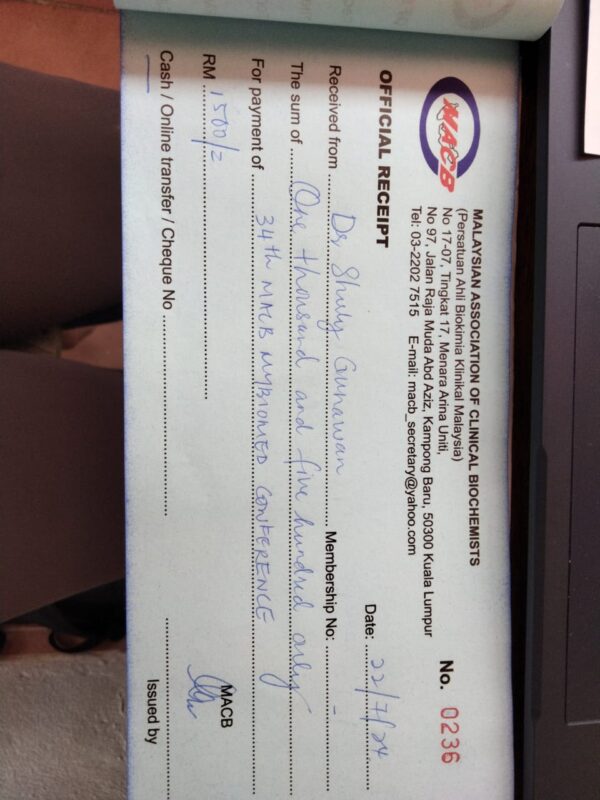 MACB
MALAYSIAN ASSOCIATION OF CLINICAL BIOCHEMISTS
(Persatuan Ahli Biokimia Klinikal Malaysia)
No 17-07, Tingkat 17, Menara Arina Uniti,
No 97, Jalan Raja Muda Abd Aziz, Kampong Baru, 50300 Kuala Lumpur
Tel: 03-2202 7515 E-mail: macb_secretary@yahoo.com
No. 0236
OFFICIAL RECEIPT
Date: 22/7/24
Received from Dr Gunawan Membership No: -
The sum of One thousand and five hundred only
For payment of 34th MACB MYBIOMED CONFERENCE
RM 1500/=
MACB
Cash / Online transfer / Cheque No
Issued by